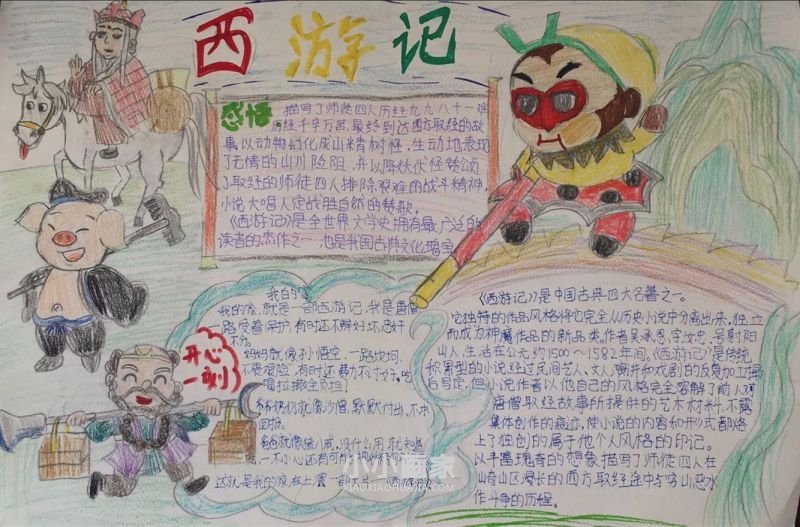 西游记
感悟
描写了师徒四人历经九九八十一难
历经千辛万苦,最终到达西方取经的故
事,以动物幻化成山精树怪,生动地表现
了无情的山川险阻,并以降妖伏怪赞颂
了取经的师徒四人排除艰难的战斗精神,
小说大唱人定战胜自然的赞歌。
《西游记》是全世界文学史拥有最广泛的
读者的杰作之一,也是我国古典文化瑰宝
开心
一刻
我的
我的家,就是一部西游记,我是唐僧
路受着保护,有时还不解好坏,忠奸
不分。
妈妈就像孙悟空,一路坎坷,
不畏艰险,有时还费力不讨好,吃
喝拉撒全负担!
爷爷奶奶就像沙僧,默默付出,不求
回报。
爸爸就像猪八戒,没什么用,就知道
一不小心还有可能
这就是我的家,在上演一部大片
《西游记》是中国古典四大名著之一。
它独特的作品风格将它完全从历史小说中分离出来,独立
而成为神魔作品的新品类,作者吴承恩,字汝忠,号射阳
山人,生活在公元约1500~1582年间。《西游记》是传统
积累型的小说,经过民间艺人、文人演并和戏剧的反复加工
后写定,但小说作者以他自己的风格完全溶解了前人对
唐僧取经故事所提供的艺术材料,不露
集体创作的痕迹,使小说的内容和形式都烙
上了独创的属于他个人风格的印记。
以丰富瑰奇的想象描写了师徒四人在
山奇山区漫长的西方取经途中与穷山恶水
作斗争的历程。
小小画家
XIAOXIAOHUAJIA.COM